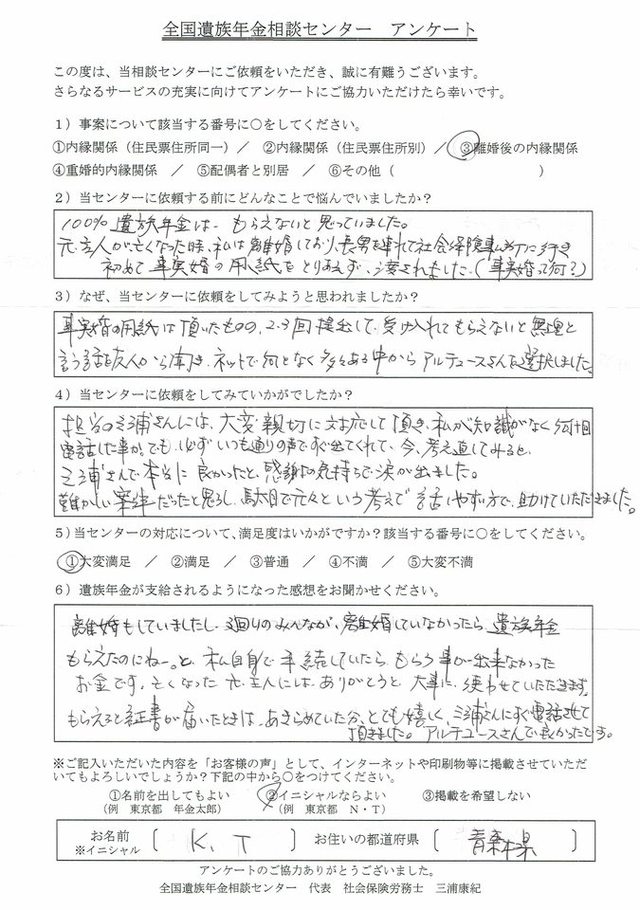 全国遺族年金相談センター　アンケート
この度は、当相談センターにご依頼をいただき、誠に有難うございます。
さらなるサービスの充実に向けてアンケートにご協力いただけたら幸いです。
1）事案について該当する番号に○をしてください。
①内縁関係（住民票住所同一）／　②内縁関係（住民票住所別）／　③離婚後の内縁関係
④重婚的内縁関係　／　⑤配偶者と別居　／　⑥その他（　　　　　　　　　）
2）当センターに依頼する前にどんなことで悩んでいましたか？
100%遺族年金は、もらえないと思っていました。
元主人が亡くなった時、私は離婚しており、長男を連れて社会保険事務所に行き
初めて事実婚の用紙をとりあえず、渡されました。（事実婚って何？）
3）なぜ、当センターに依頼をしてみようと思われましたか？
事実婚の用紙は頂いたものの、2・3回提出して、受け入れてもらえないと無理と
言う話を友人から聞き、ネットで何となく多々ある中からアルテュースさんを選択しました。
4）当センターに依頼をしてみていかがでしたか？
担当の三浦さんには、大変親切に対応して頂き、私が知識がなく何十回
電話した事か。でも、必ずいつも通りの声ですぐ出てくれて、今、考え直してみると、
三浦さんで本当に良かったと、感謝の気持ちで涙が出ました。
難かしい案件だったと思うし、駄目で元々という考えで話しやすい方で、助けていただきました。
5）当センターの対応について、満足度はいかがですか？該当する番号に○をしてください。
①大変満足　／　②満足　／　③普通　／　④不満　／　⑤大変不満
6）遺族年金が支給されるようになった感想をお聞かせください。
離婚もしていましたし、廻りのみんなが、離婚していなかったら、遺族年金
もらえたのにねー。と、私自身で手続していたら、もらう事が出来なかった
お金です。亡くなった元主人には、ありがとうと、大事に使わせていただきます。
もらえると証書が届いたときは、あきらめていた分、とても嬉しく、三浦さんにすぐ電話させて
頂きました。アルテュースさんで良かったです。
※ご記入いただいた内容を「お客様の声」として、インターネットや印刷物等に掲載させていただ
いてもよろしいでしょうか？下記の中から○をつけてください。
①名前を出してもよい　　②イニシャルならよい　　③掲載を希望しない
（例　東京都　年金太郎）　　（例　東京都　N・T）
お名前　〔　K、T　〕　お住いの都道府県　〔　青森県　〕
※イニシャル
アンケートのご協力ありがとうございました。
全国遺族年金相談センター　代表　社会保険労務士　三浦康紀